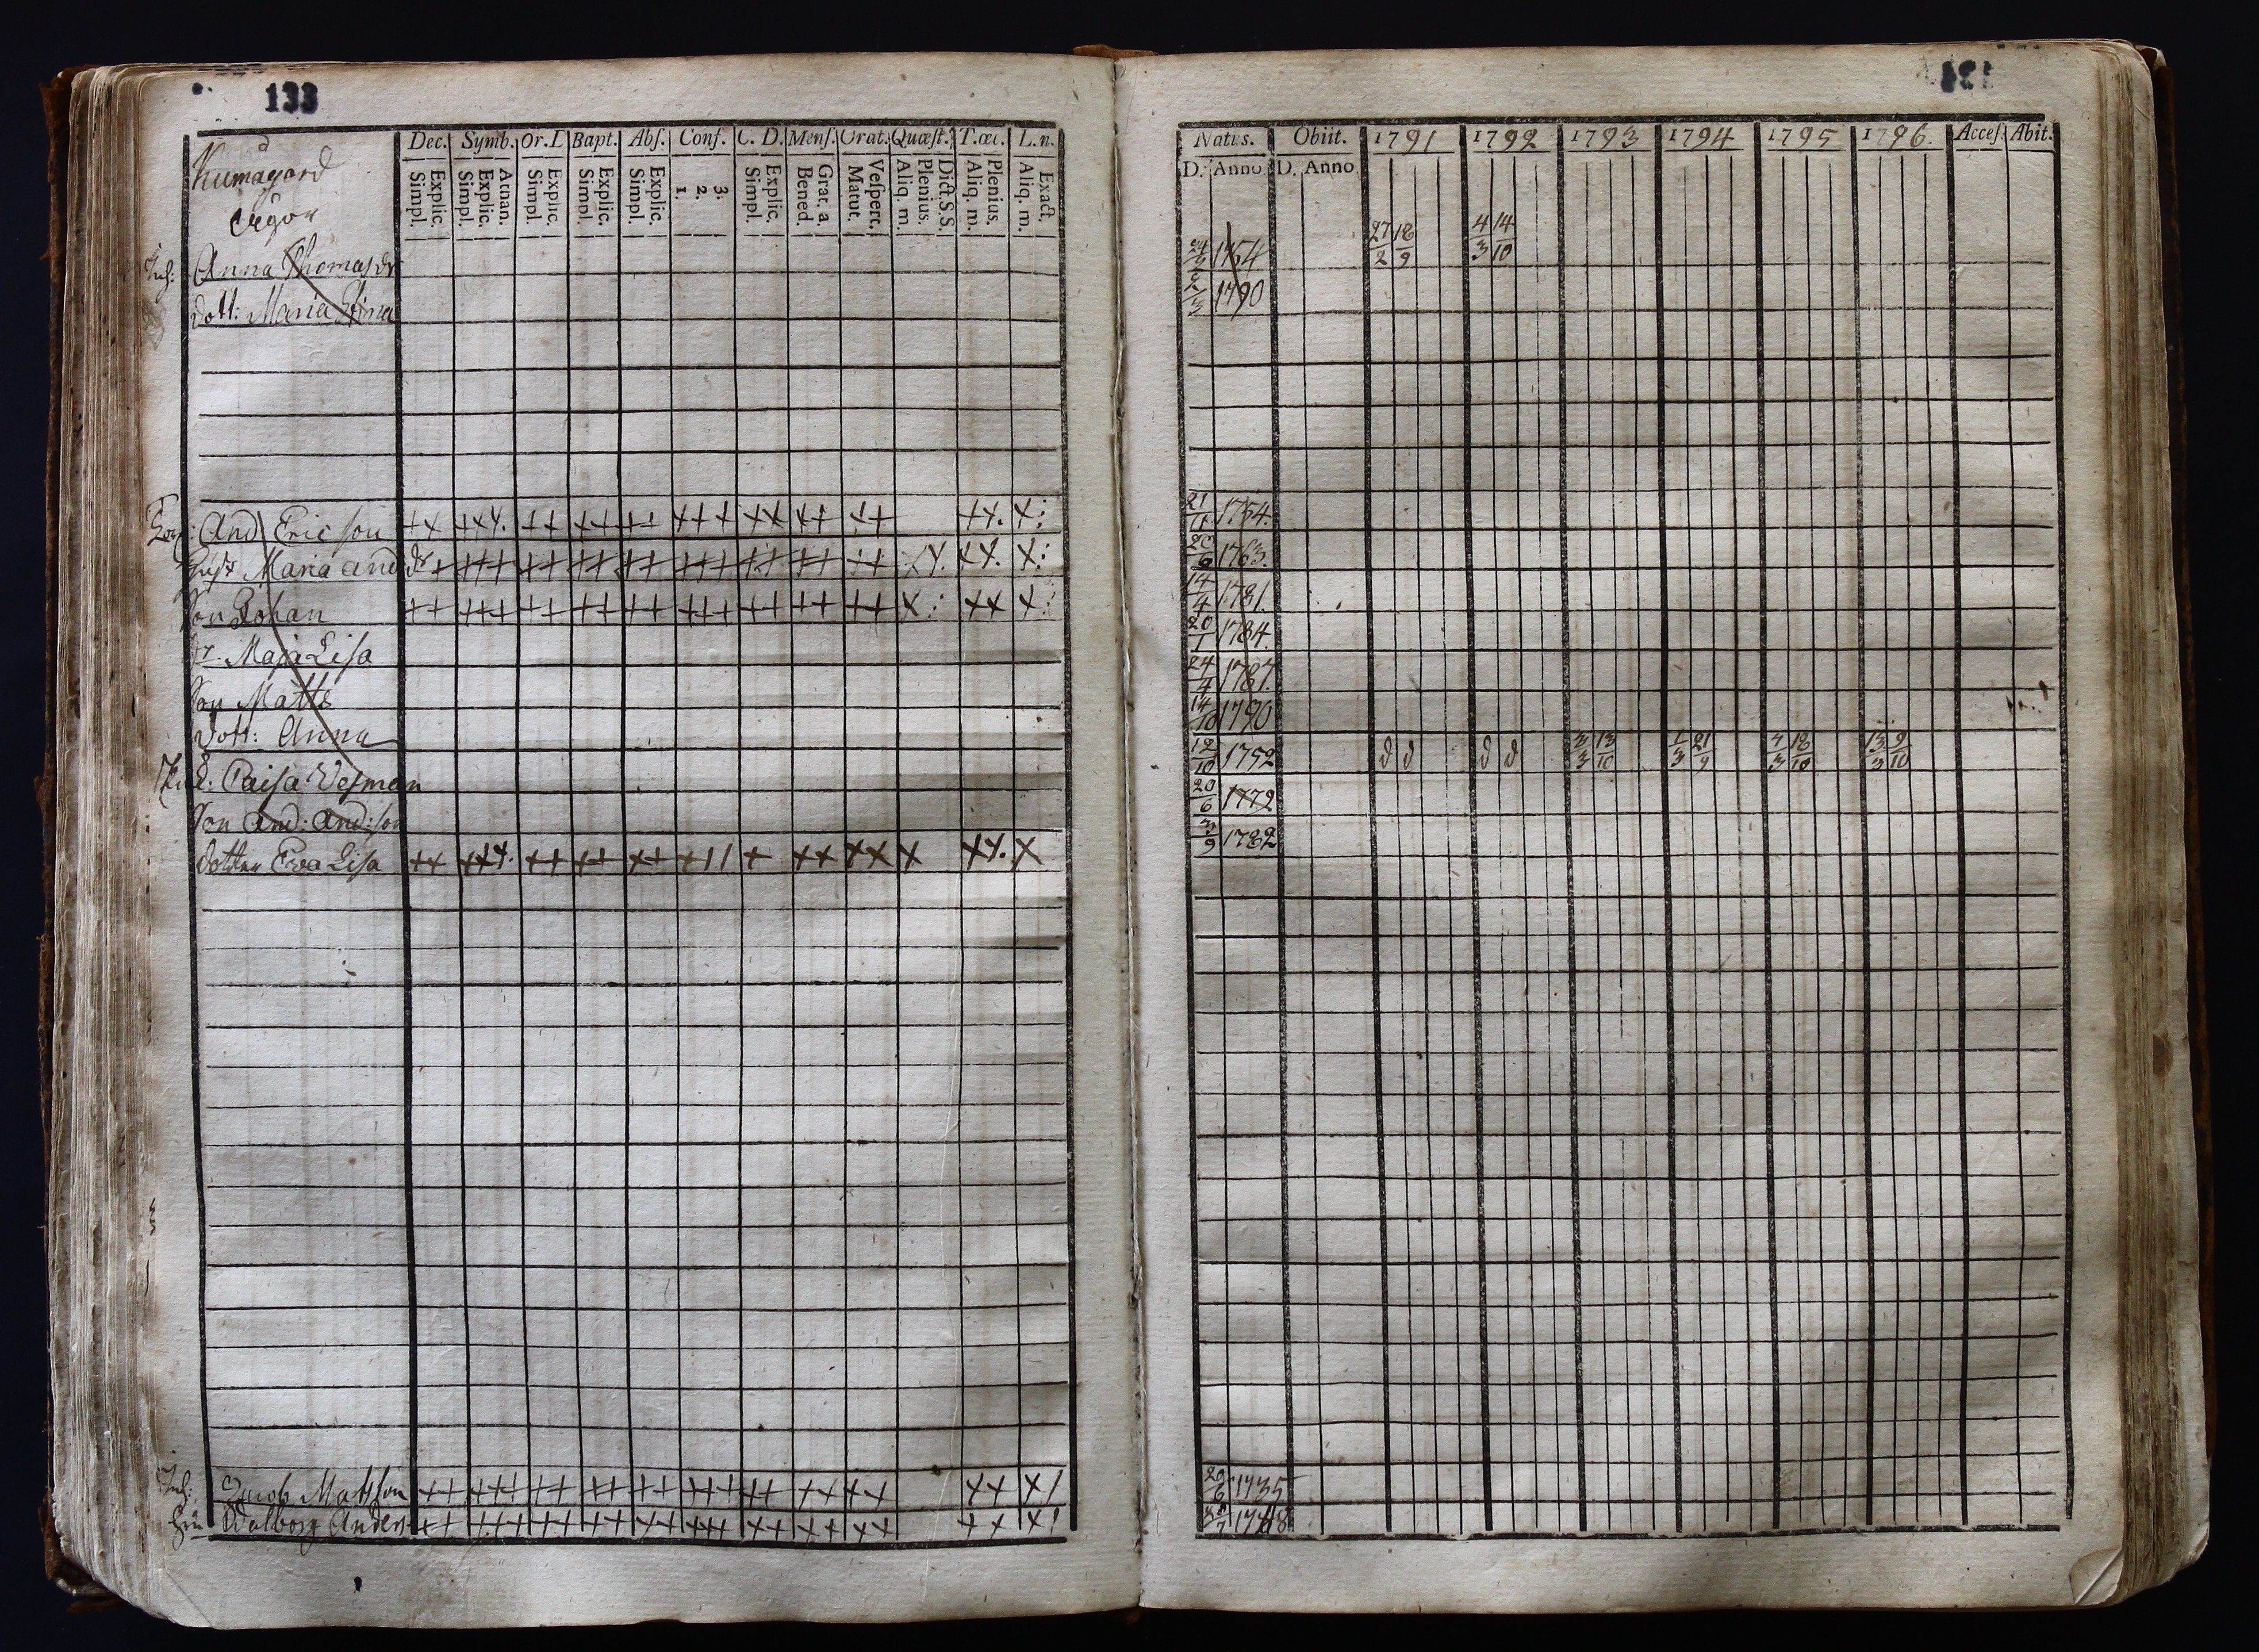 133
Dec. Symb. Or. D Bapt. Abſ. Conf. C. D. Menſ. Orat. Quæſt. T.æt. L.n.
Explic. Simpl. Atnan. Explic. Simpl. Explic. Simpl. Explic. Simpl. Explic. Simpl. 3. 2. 1. Explic. Simpl. Grat. a. Bened. Veſpert. Matut. Dict.S.S. Plenius. Aliq. m. Plenius. Aliq. m. Exact. Aliq. m.
Kumagård
ägor
Inh: Anna Thomasdr
dott: Maria Stina
And Ericson ++ +++. ++ ++ ++ +++ ++ ++ ++ ++. +:
Hust Maria And dr + +++ ++ ++ ++ +++ ++ ++ ++ ++. ++. +:
Son Johan ++ +++ ++ ++ ++ +++ ++ ++ ++ +: ++ +:
dr. Maja Lisa
Son Matts
dott: Anna
Caisa Vesman
Son And: And:son
dotter Eva Lisa ++ +++. ++ ++ ++ +11 + ++ ++ + ++. +
Inh: Jacob Matsson ++ +++ ++ ++ ++ +++ ++ ++ ++ ++ +1
Hu Walborg Anders ++ +++ ++ ++ ++ +++ ++ ++ ++ ++ +1
Natus. Obiit. 1791 1792 1793 1794 1795 1796. Acceſ. Abit.
D. Anno D. Anno
1754 27/2 18/9 4/3 14/10
2/3 1790
21/11 1754.
20/6 1763.
14/4 1781.
20/1 1784.
24/4 1787.
14/10 1790
12/10 1752 d d d d 3/3 13/10 1/3 21/9 4/3 18/10 13/3 9/10
20/6 1772
3/9 1782
29/6 1735
1748